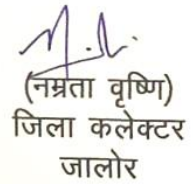 (नम्रता वृष्णि)
जिला कलेक्टर
जालोर